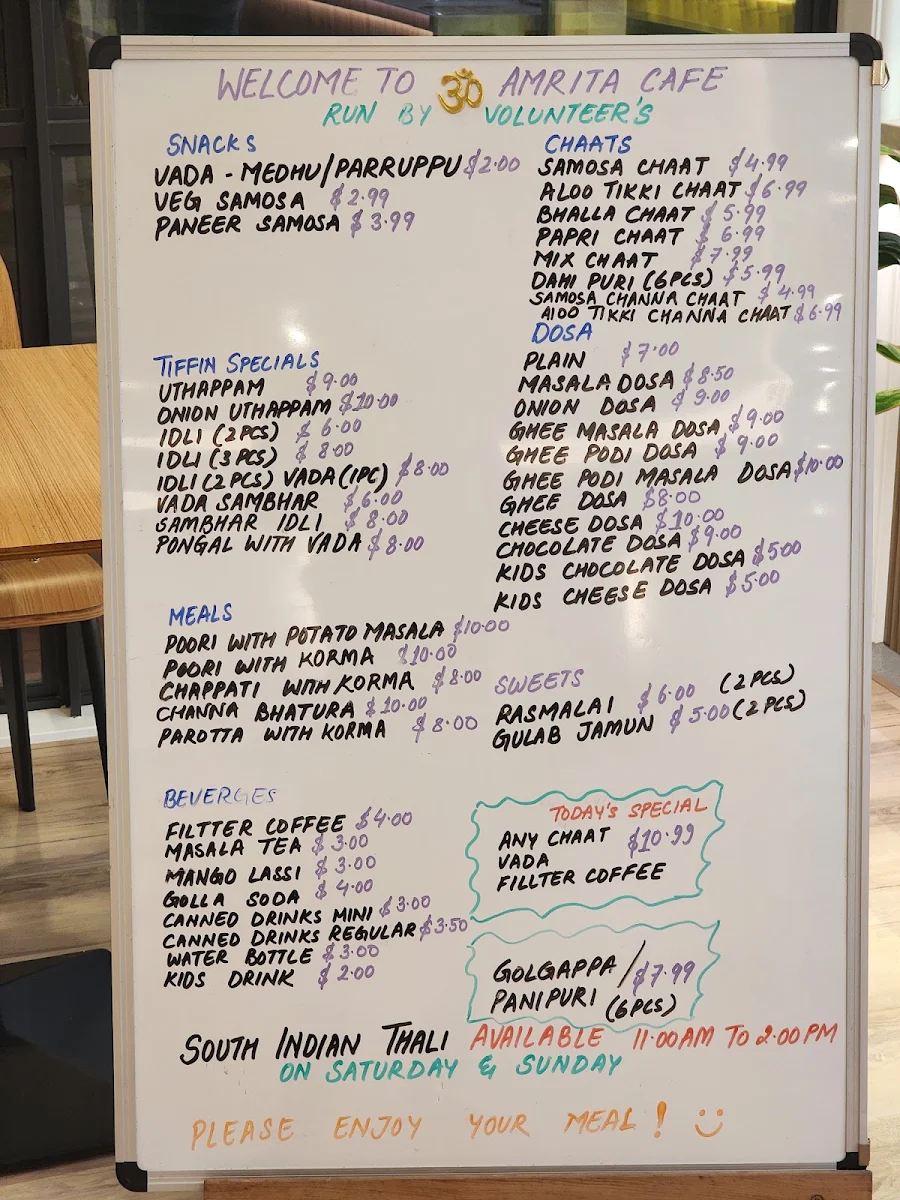 WELCOME TO ॐ AMRITA CAFE
RUN BY VOLUNTEER'S
SNACKS
VADA - MEDHU/PARRUPPU $2.00
VEG SAMOSA $2.99
PANEER SAMOSA $3.99
CHAATS
SAMOSA CHAAT $4.99
ALOO TIKKI CHAAT $6.99
BHALLA CHAAT $5.99
PAPRI CHAAT $6.99
MIX CHAAT $7.99
DAHI PURI (6PCS) $5.99
SAMOSA CHANNA CHAAT $4.99
AlOO TIKKI CHANNA CHAAT $6.99
TIFFIN SPECIALS
UTHAPPAM $9.00
ONION UTHAPPAM $10.00
IDLI (2PCS) $6.00
IDLI (3PCS) $8.00
IDLI (2PCS) VADA (1PC) $8.00
VADA SAMBHAR $6.00
SAMBHAR IDLI $8.00
PONGAL WITH VADA $8.00
DOSA
PLAIN $7.00
MASALA DOSA $8.50
ONION DOSA $9.00
GHEE MASALA DOSA $9.00
GHEE PODI DOSA $9.00
GHEE PODI MASALA DOSA $10.00
GHEE DOSA $8.00
CHEESE DOSA $10.00
CHOCOLATE DOSA $9.00
KIDS CHOCOLATE DOSA $5.00
KIDS CHEESE DOSA $5.00
MEALS
POORI WITH POTATO MASALA $10.00
POORI WITH KORMA $10.00
CHAPPATI WITH KORMA $8.00
CHANNA BHATURA $10.00
PAROTTA WITH KORMA $8.00
SWEETS
RASMALAI $6.00 (2PCS)
GULAB JAMUN $5.00 (2PCS)
BEVERGES
FILTTER COFFEE $4.00
MASALA TEA $3.00
MANGO LASSI $3.00
GOLLA SODA $4.00
CANNED DRINKS MINI $3.00
CANNED DRINKS REGULAR $3.50
WATER BOTTLE $3.00
KIDS DRINK $2.00
TODAY'S SPECIAL
ANY CHAAT $10.99
VADA
FILLTER COFFEE
GOLGAPPA / $7.99
PANIPURI (6PCS)
SOUTH INDIAN THALI AVAILABLE 11.00AM TO 2.00PM
ON SATURDAY & SUNDAY
PLEASE ENJOY YOUR MEAL!